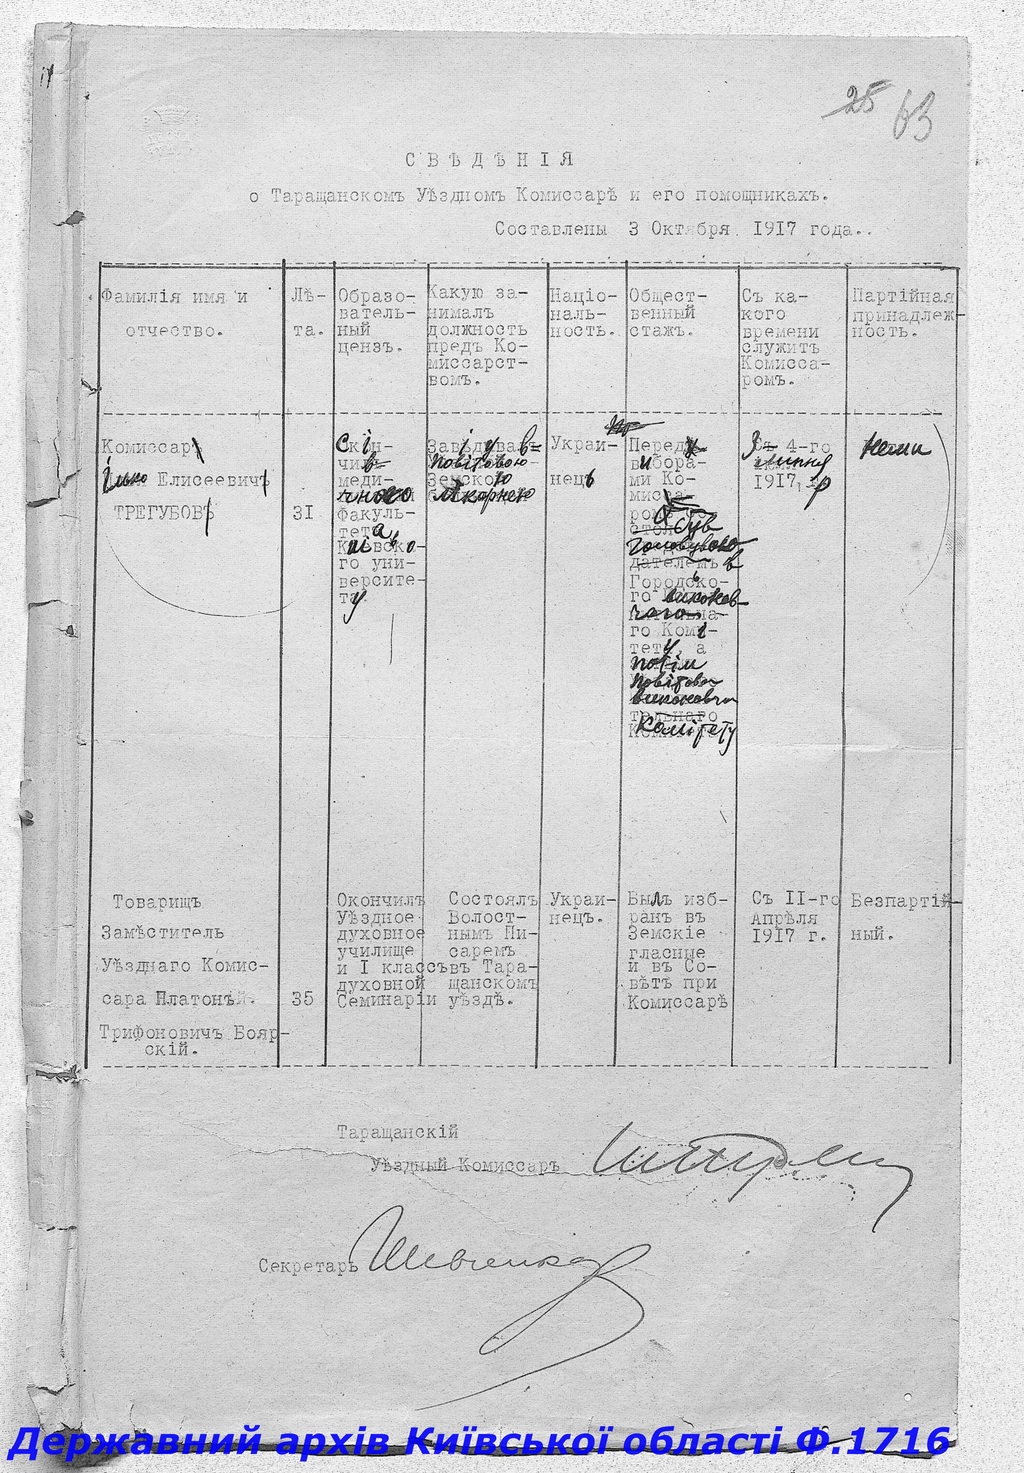 25 63
СВѢДѢНІЯ
о Таращанскомъ Уѣздномъ Комиссарѣ и его помощникахъ.
Составлены 3 Октября 1917 года..
Фамилія имя и
отчество.
Лѣ-
та.
Образо-
ватель-
ный
цензъ.
Какую за-
нималъ
должность
предъ Ко-
миссарст-
вомъ.
Націо-
наль-
ность.
Общест-
венный
стажъ.
Съ ка-
кого
времени
служитъ
Комисса-
ромъ.
Партійная
принадлеж-
ность.
Комиссаръ
Ілько Елисеевичъ
ТРЕГУБОВЪ
31
Скін-
чив
меди-
чного
Факуль-
тета
Київско-
го уни-
версите-
ту
Завідував
повітовою
Земскою
лікарнею
Украи-
нець
Перед
вибора-
ми Ко-
миса-
ром
був
головуючо
в
Городсько-
го виконав-
чого
Комі-
тету, а
потім
повітово
виконавчо
Комітету
З 4-го
липня
1917 р
Нема
Товарищъ
Замѣститель
Уѣзднаго Комис-
сара Платонъ
Трифоновичъ Бояр-
скій.
35
Окончилъ
Уѣздное
духовное
училище
и I классъ
духовной
Семинаріи
Состоялъ
Волост-
нымъ Пи-
саремъ
въ Тара-
щанскомъ
уѣздѣ.
Украи-
нецъ.
Былъ изб-
ранъ въ
Земскіе
гласные
и въ Со-
вѣтъ при
Комиссарѣ
Съ II-го
Апрѣля
1917 г.
Безпартій-
ный.
Таращанскій
Уѣздный Комиссаръ
Секретарь Шевченко
Державний архів Київської області Ф.1716